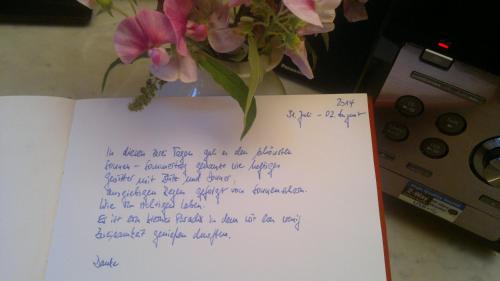 2014
31. Juli - 02. August
In diesen drei Tagen gab es den schönsten
Sonnen - Sommertag genauso wie heftiges
Gewitter mit Blitz und Donner,
ausgiebigen Regen gefolgt von Sonnenschein.
Wie im richtigen Leben.
Es ist ein kleines Paradies in dem wir ein wenig
Zweisamkeit genießen durften.
Danke